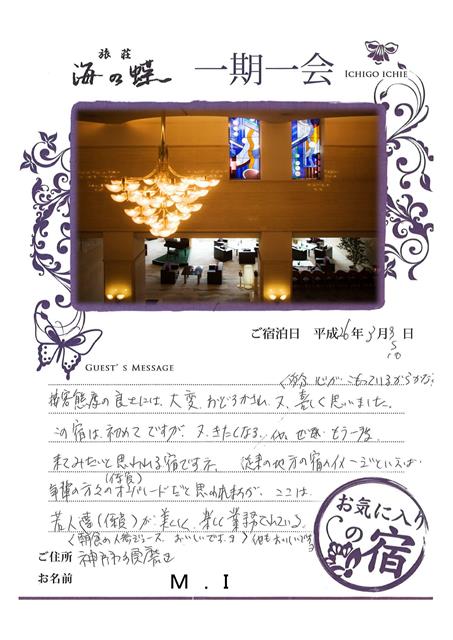 旅荘
海の蝶
一期一会
ICHIGO ICHIE
ご宿泊日 平成26年3月3日
GUEST'S MESSAGE
心がこもっているからかな
接客態度の良さには、大変、おどろかされ、又、嬉しく思いました。
この宿は初めてですが、又、きたくなる、 もう一度
来てみたいと思われる宿です 従来の地方の宿のイメージといえば
年輩の方々の だと思われますが、ここは
若人達 が美しく、楽しく 。
朝食の人参ジュース、おいしいです 他もおいしいです
お気に入りの宿
ご住所 神戸市須磨区
お名前 M . I